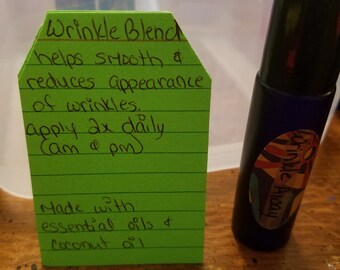 Wrinkle Blend
helps smooth &
reduces appearance
of wrinkles.
apply 2x daily
(am & pm)
Made with
essential oils &
coconut oil
Wrinkle Away